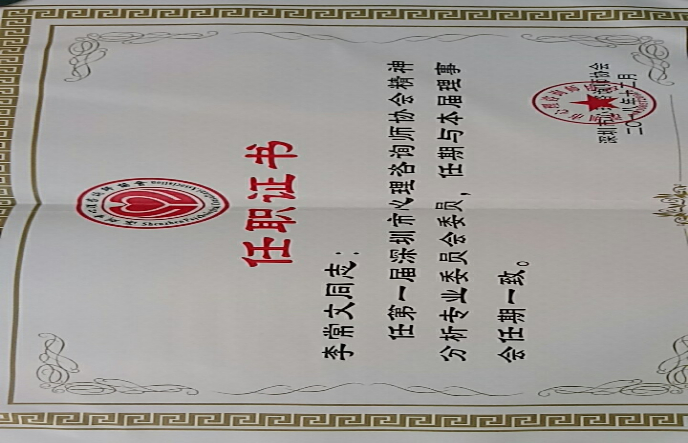 任职证书
李常文同志：
任第一届深圳市心理咨询师协会精神
分析专业委员会委员，任期与本届理事
会任期一致。
深圳市心理咨询师协会
二〇一八年十二月